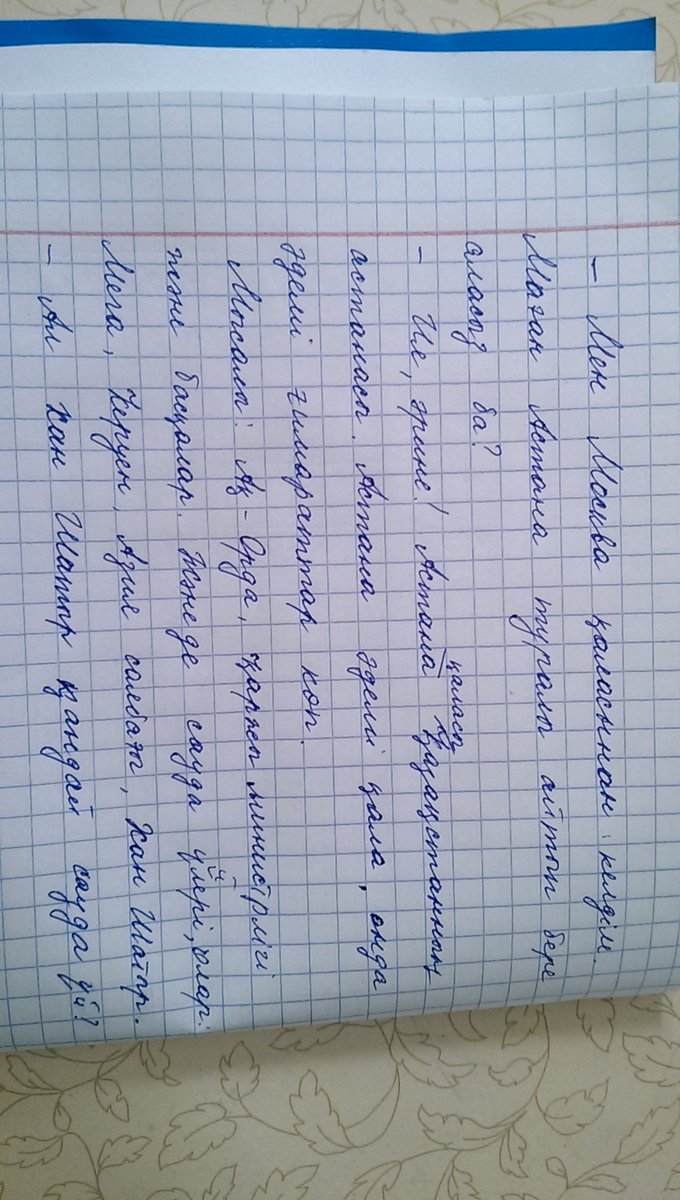 – Мен Москва қаласынан келдім.
Маған Астана туралы айтып бере
аласыз ба?
– Ия, әрине! Астана қаласы Қазақстанның
астанасы. Астана әдемі қала, онда
әдемі ғимараттар көп.
Мысалы: Ақ-Орда, қаржы министрлігі
және басқалар. Және де сауда үйлері, олар:
Мега, Керуен, Азия саябағы, Хан Шатыр.
– Ал Хан Шатыр қандай сауда үй?